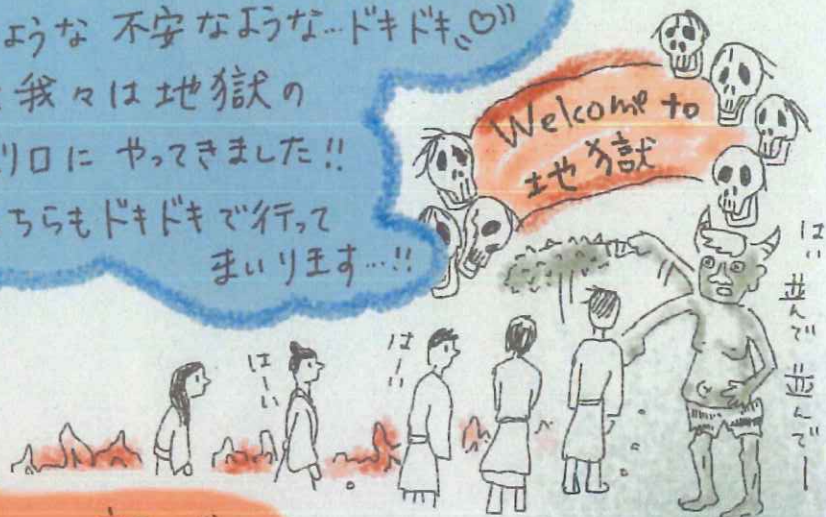 ような 不安なような…ドキドキ♡
我々は地獄の
り口に やってきました!!
ちらもドキドキで行って
まいります…!!
Welcome to
地獄
はい 並んで 並んでー
はーい
はーい